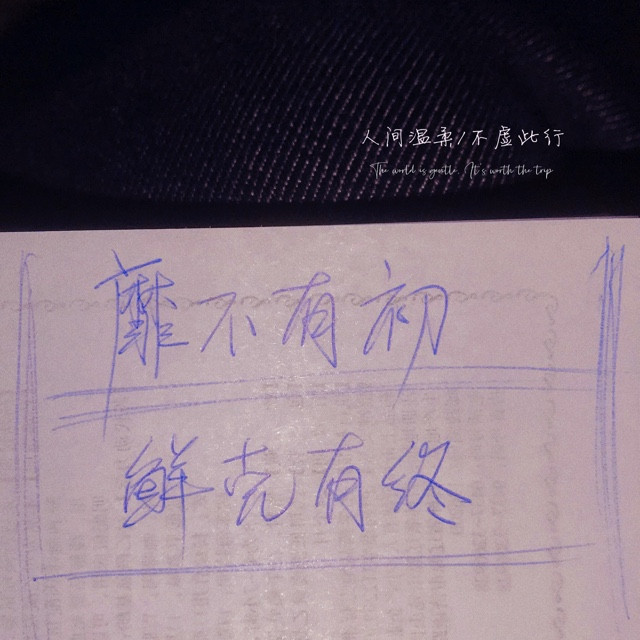 人间温柔/不虚此行
The world is gentle. It's worth the trip
靡不有初
鲜克有终